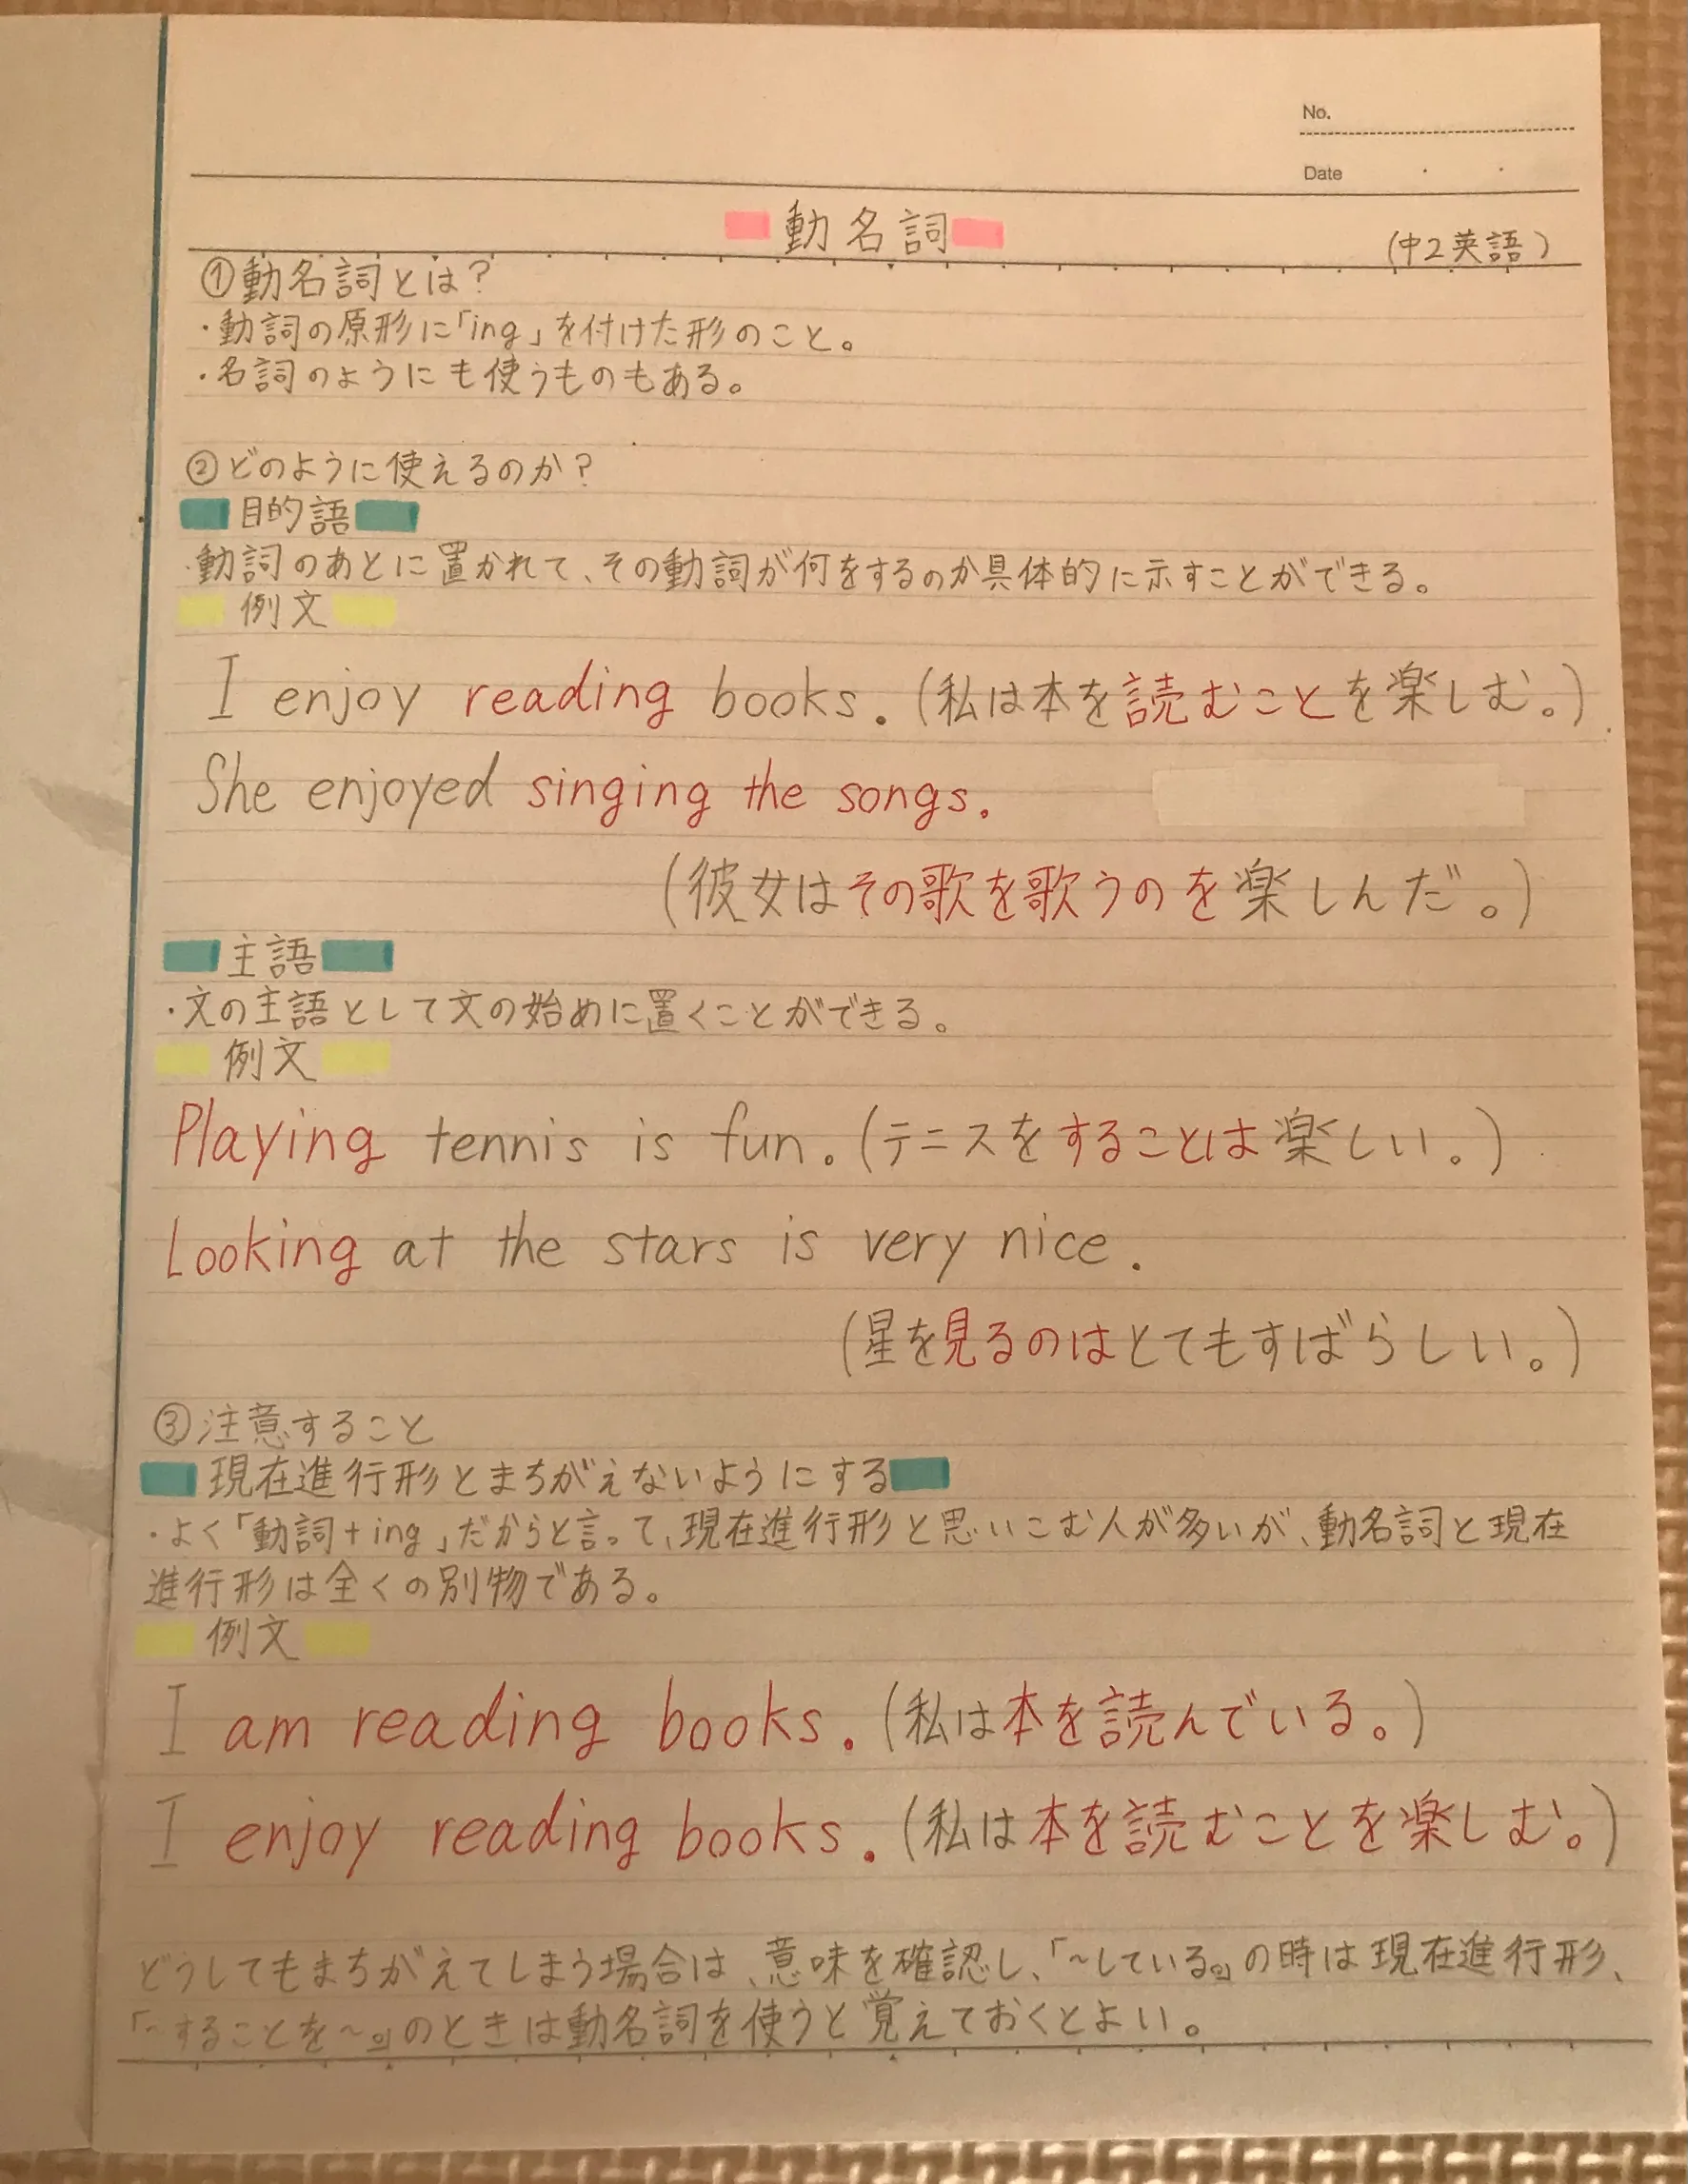 No.
Date
動名詞
(中2英語)
①動名詞とは?
・動詞の原形に「ing」を付けた形のこと。
・名詞のようにも使うものもある。
②どのように使えるのか?
目的語
・動詞のあとに置かれて、その動詞が何をするのか具体的に示すことができる。
例文
I enjoy reading books. (私は本を読むことを楽しむ。)
She enjoyed singing the songs.
(彼女はその歌を歌うのを楽しんだ。)
主語
・文の主語として文の始めに置くことができる。
例文
Playing tennis is fun. (テニスをすることは楽しい。)
Looking at the stars is very nice.
(星を見るのはとてもすばらしい。)
③注意すること
現在進行形とまちがえないようにする
・よく「動詞+ing」だからと言って、現在進行形と思いこむ人が多いが、動名詞と現在
進行形は全くの別物である。
例文
I am reading books. (私は本を読んでいる。)
I enjoy reading books. (私は本を読むことを楽しむ。)
どうしてもまちがえてしまう場合は、意味を確認し、「~している。」の時は現在進行形、
「~することを~。」のときは動名詞を使うと覚えておくとよい。